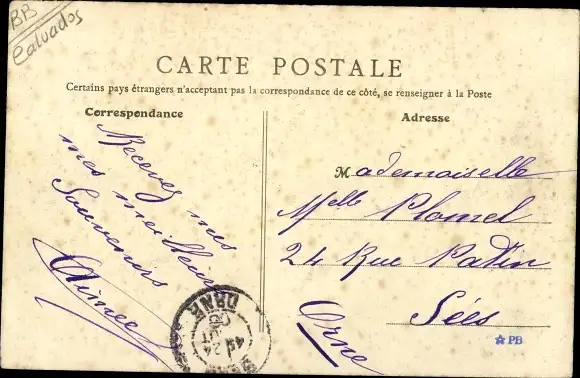 BB
Calvados
CARTE POSTALE
Certains pays étrangers n'acceptant pas la correspondance de ce côté, se renseigner à la Poste
Correspondance
Recevez mes
mes meilleurs
Souvenirs
Aimée
Adresse
Mademoiselle
Melle Plomel
24 Rue Patin
Sées
Orne
PB
ORNE
24